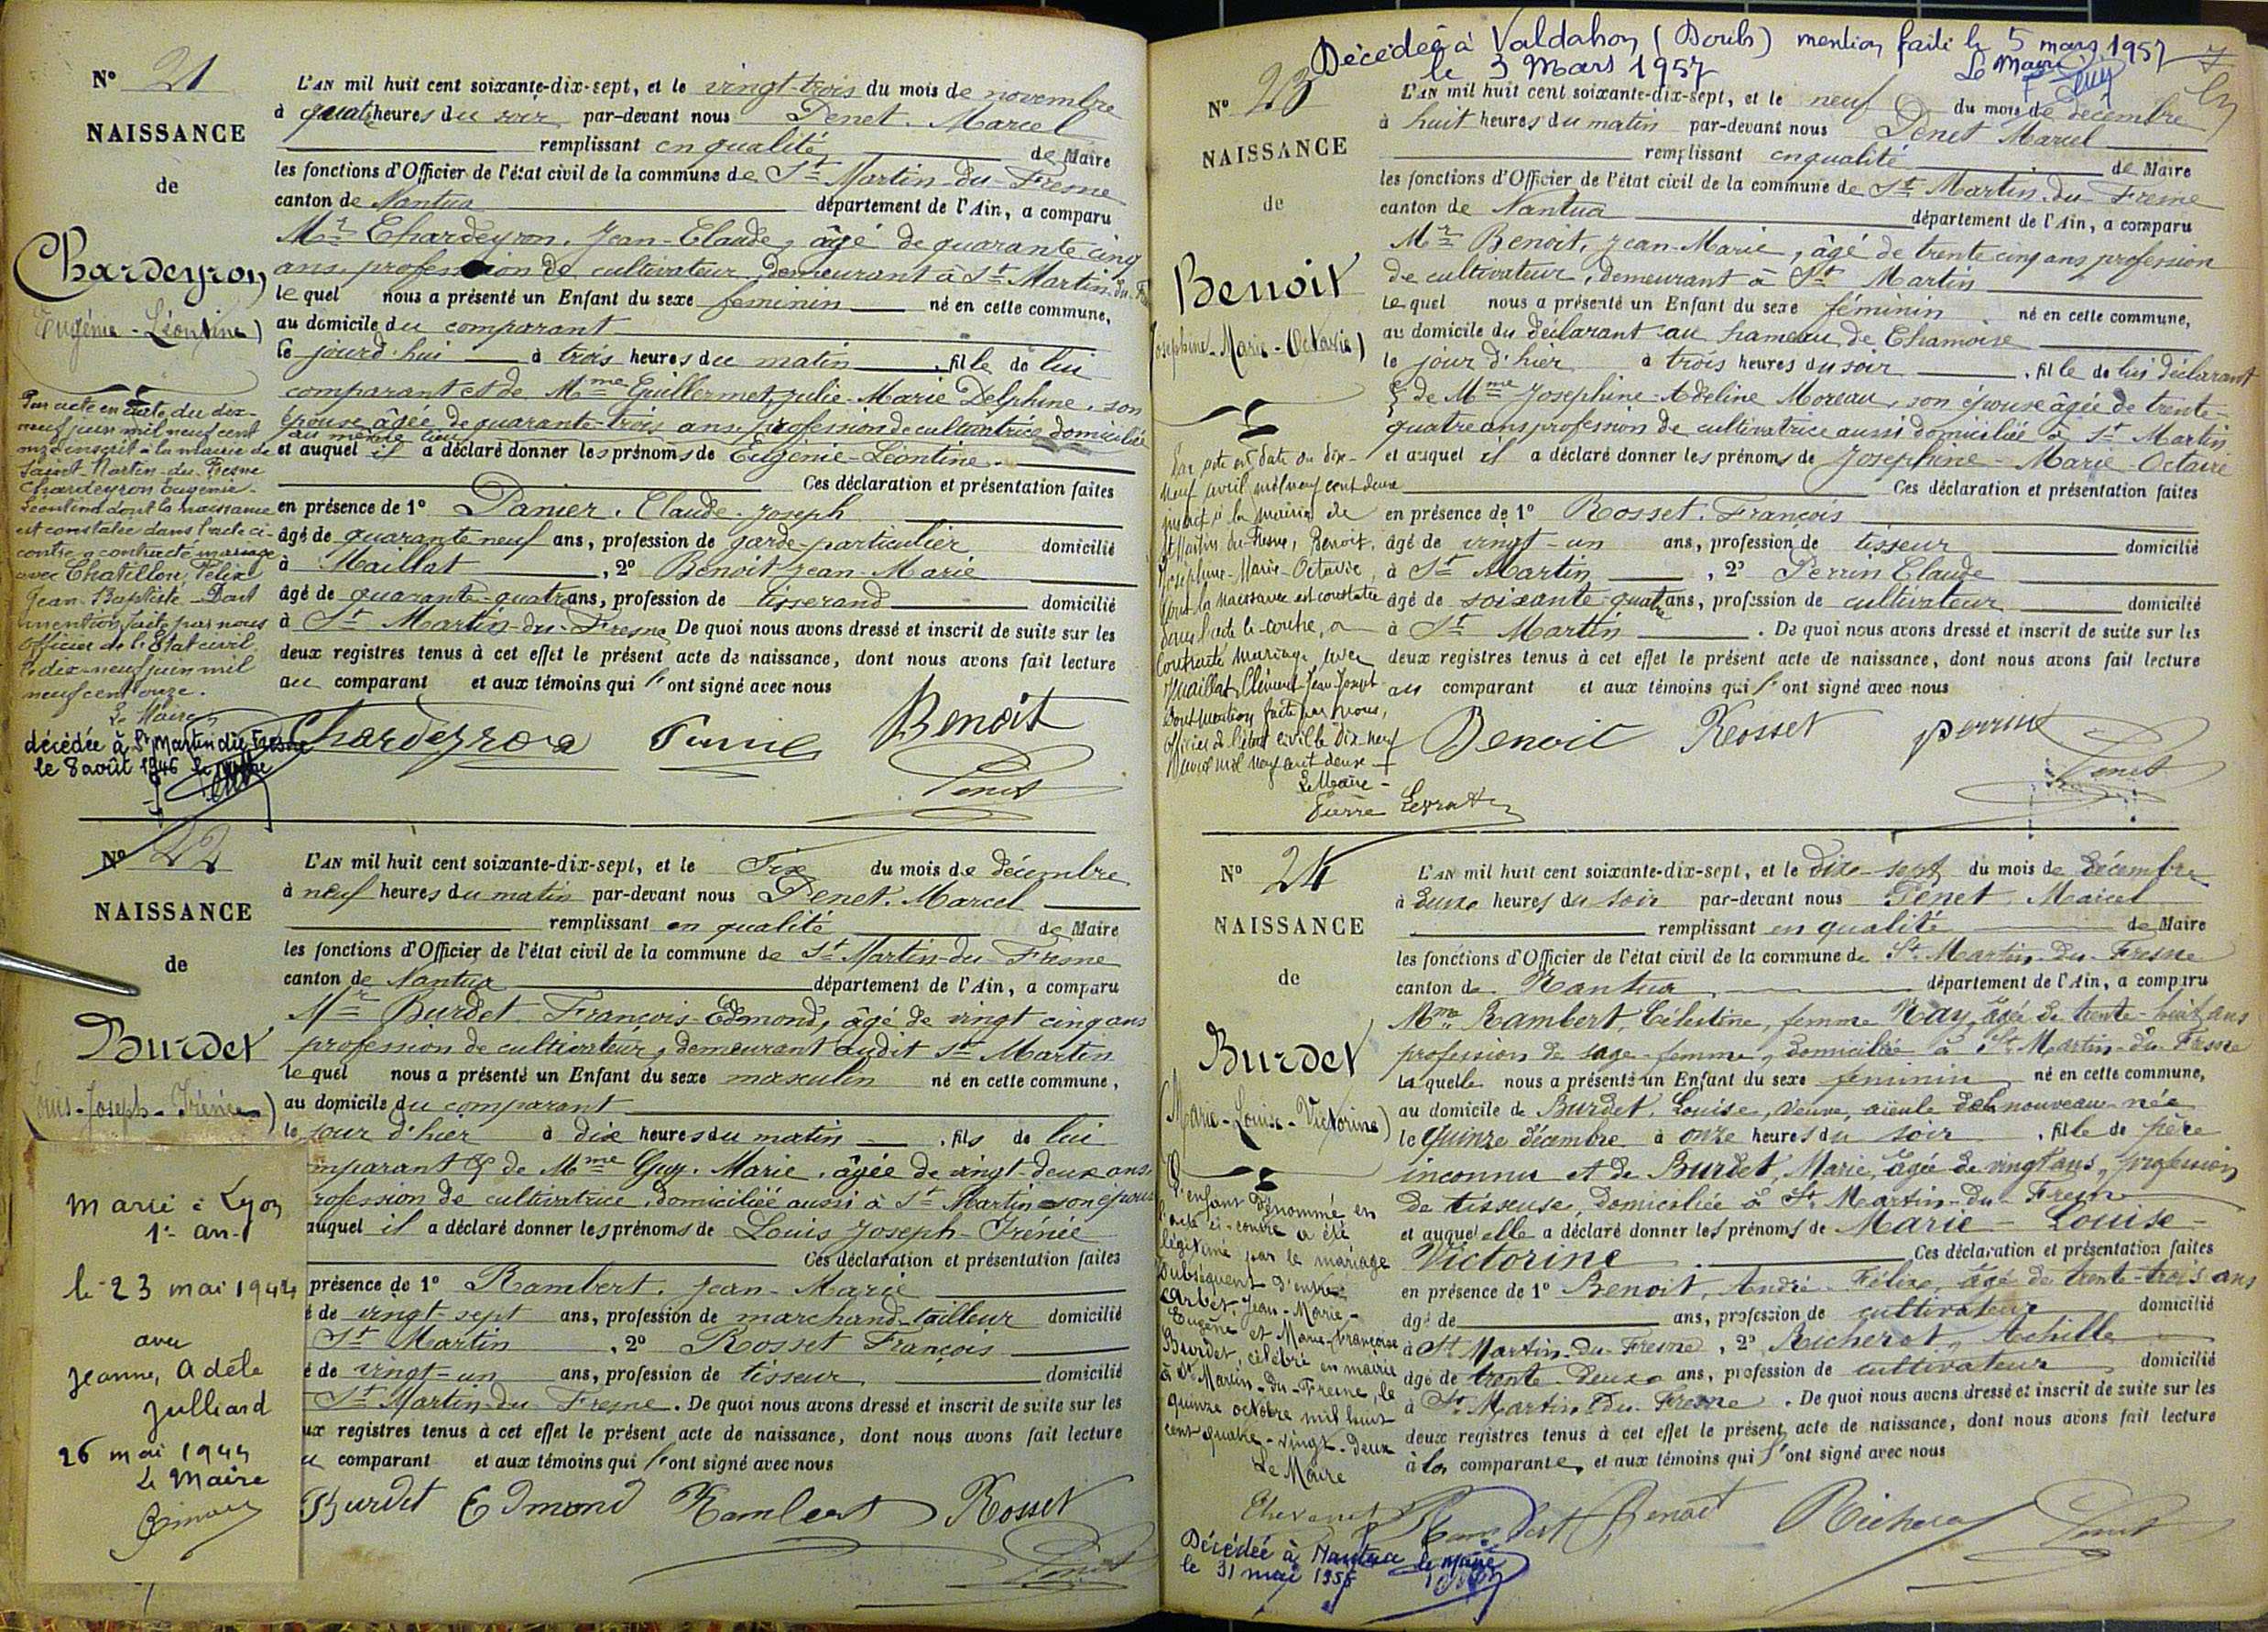 N° 21
NAISSANCE
de
Chardeyron
(Eugénie-Léontine)
Par acte en date du dix-
neuf juin mil neuf cent
onze inscrit à la mairie de
Saint Martin-du-Fresne
Chardeyron Eugénie-
Léontine dont la naissance
est constatée dans l'acte ci-
contre a contracté mariage
avec Chatillon, Félix
Jean-Baptiste - Dont
mention faite par nous
officier de l'Etat civil
le dix-neuf juin mil
neuf cent onze.
Le Maire
décédée à St Martin du Fresne
le 8 août 1946 le maire
L'AN mil huit cent soixante-dix-sept, et le vingt-trois du mois de novembre
à quatre heures du soir par-devant nous Penet. Marcel
remplissant en qualité de Maire
les fonctions d'Officier de l'état civil de la commune de St Martin-du-Fresne
canton de Nantua département de l'Ain, a comparu
Mr Chardeyron. Jean-Claude, âgé de quarante cinq
ans, profession de cultivateur, demeurant à St Martin-du-Fr
lequel nous a présenté un Enfant du sexe féminin né en cette commune,
au domicile du comparant
le jourd'hui à trois heures du matin, fille de lui
comparant et de Mme Guillermet, Julie-Marie Delphine, son
épouse âgée de quarante-trois ans, profession de cultivatrice domiciliée
au même lieu
et auquel il a déclaré donner les prénoms de Eugénie-Léontine.
Ces déclaration et présentation faites
en présence de 1° Panier. Claude-Joseph
âgé de quarante neuf ans, profession de garde-particulier domicilié
à Maillat, 2° Benoit Jean-Marie
âgé de quarante-quatre ans, profession de tisserand domicilié
à St Martin-du-Fresne De quoi nous avons dressé et inscrit de suite sur les
deux registres tenus à cet effet le présent acte de naissance, dont nous avons fait lecture
au comparant et aux témoins qui l'ont signé avec nous
Chardeyron Benoit
Penet
N° 22
NAISSANCE
de
Burdet
(Louis-Joseph-Irénée)
Marié à Lyon
1er arr
le 23 mai 1944
avec
Jeanne, Adèle
Julliard
26 mai 1944
Le Maire
L'AN mil huit cent soixante-dix-sept, et le Six du mois de décembre
à neuf heures du matin par-devant nous Penet. Marcel
remplissant en qualité de Maire
les fonctions d'Officier de l'état civil de la commune de St Martin-du-Fresne
canton de Nantua département de l'Ain, a comparu
Mr Burdet. François-Edmond, âgé de vingt cinq ans
profession de cultivateur, demeurant audit St Martin
lequel nous a présenté un Enfant du sexe masculin né en cette commune,
au domicile du comparant
le jour d'hier à dix heures du matin, fils de lui
mparant & de Mme Guy. Marie, âgée de vingt-deux ans,
rofession de cultivatrice, domiciliée aussi à St Martin son épouse
auquel il a déclaré donner les prénoms de Louis Joseph-Irénée
Ces déclaration et présentation faites
présence de 1° Rambert. Jean-Marie
é de vingt-sept ans, profession de marchand-tailleur domicilié
St Martin, 2° Rosset François
é de vingt-un ans, profession de tisseur domicilié
St Martin-du Fresne. De quoi nous avons dressé et inscrit de suite sur les
ux registres tenus à cet effet le présent acte de naissance, dont nous avons fait lecture
u comparant et aux témoins qui l'ont signé avec nous
Burdet Edmond Rambert Rosset
Penet
Décédée à Valdahon (Doubs) mention faite le 5 mars 1957
le 3 Mars 1957 Le Maire
N° 23
NAISSANCE
de
Benoit
Josephine-Marie-Octavie)
Par acte en date du dix-
neuf avril mil neuf cent deux
inscrit à la mairie de
St Martin du Fresne, Benoit,
Josephine-Marie-Octavie,
dont la naissance est constatée
dans l'acte ci-contre, a
contracté mariage avec
Maillat, Clément-Jean-Joseph
Dont mention faite par nous,
officier de l'état civil le dix-neuf
avril mil neuf cent deux
Le Maire
Pierre
L'AN mil huit cent soixante-dix-sept, et le neuf du mois de décembre
à huit heures du matin par-devant nous Penet Marcel
remplissant en qualité de Maire
les fonctions d'Officier de l'état civil de la commune de St Martin-du-Fresne
canton de Nantua département de l'Ain, a comparu
Mr Benoit, Jean-Marie, âgé de trente cinq ans profession
de cultivateur, demeurant à St Martin
lequel nous a présenté un Enfant du sexe féminin né en cette commune,
au domicile du déclarant au hameau de Chamoise
le jour d'hier à trois heures du soir, fille de lui déclarant
& de Mme Josephine-Adeline Moreau, son épouse âgée de trente-
quatre ans profession de cultivatrice aussi domiciliée à St Martin
et auquel il a déclaré donner les prénoms de Josephine-Marie-Octavie
Ces déclaration et présentation faites
en présence de 1° Rosset. François
âgé de vingt-un ans, profession de tisseur domicilié
à St Martin, 2° Perrin Claude
âgé de soixante-quatre ans, profession de cultivateur domicilié
à St Martin. De quoi nous avons dressé et inscrit de suite sur les
deux registres tenus à cet effet le présent acte de naissance, dont nous avons fait lecture
au comparant et aux témoins qui l'ont signé avec nous
Benoit Rosset perrin
Penet
N° 24
NAISSANCE
de
Burdet
(Marie-Louise-Victorine)
L'enfant dénommé en
l'acte ci-contre a été
légitimé par le mariage
subséquent d'entre
Carbet, Jean-Marie-
Eugène et Marie-Françoise
Burdet, célébré en mairie
à St Martin-du-Fresne, le
quinze octobre mil huit
cent quatre-vingt-deux
Le Maire
Décédée à Nantua le maire
le 31 mai 1955
L'AN mil huit cent soixante-dix-sept, et le dix-sept du mois de décembre
à deux heures du soir par-devant nous Penet Marcel
remplissant en qualité de Maire
les fonctions d'Officier de l'état civil de la commune de St Martin-du-Fresne
canton de Nantua département de l'Ain, a comparu
Mme Rambert, Célestine, femme Nay, âgée de trente-huit ans
profession de sage-femme, domiciliée à St Martin-du-Fresne
laquelle nous a présenté un Enfant du sexe féminin né en cette commune,
au domicile de Burdet, Louise, veuve, aïeule del nouveau-née
le quinze décembre à onze heures du soir, fille de père
inconnu et de Burdet, Marie, âgée de vingt ans, profession
de tisseuse, domiciliée à St Martin-du-Fresne
et auquel elle a déclaré donner les prénoms de Marie-Louise-
Victorine Ces déclaration et présentation faites
en présence de 1° Benoit, André-Félix, âgé de trente-trois ans
âgé de ans, profession de cultivateur domicilié
à St Martin-du-Fresne, 2° Richerot, Achille
âgé de trente-deux ans, profession de cultivateur domicilié
à St Martin-du-Fresne. De quoi nous avons dressé et inscrit de suite sur les
deux registres tenus à cet effet le présent acte de naissance, dont nous avons fait lecture
à la comparante, et aux témoins qui l'ont signé avec nous
Rambert Benoit Richerot Penet